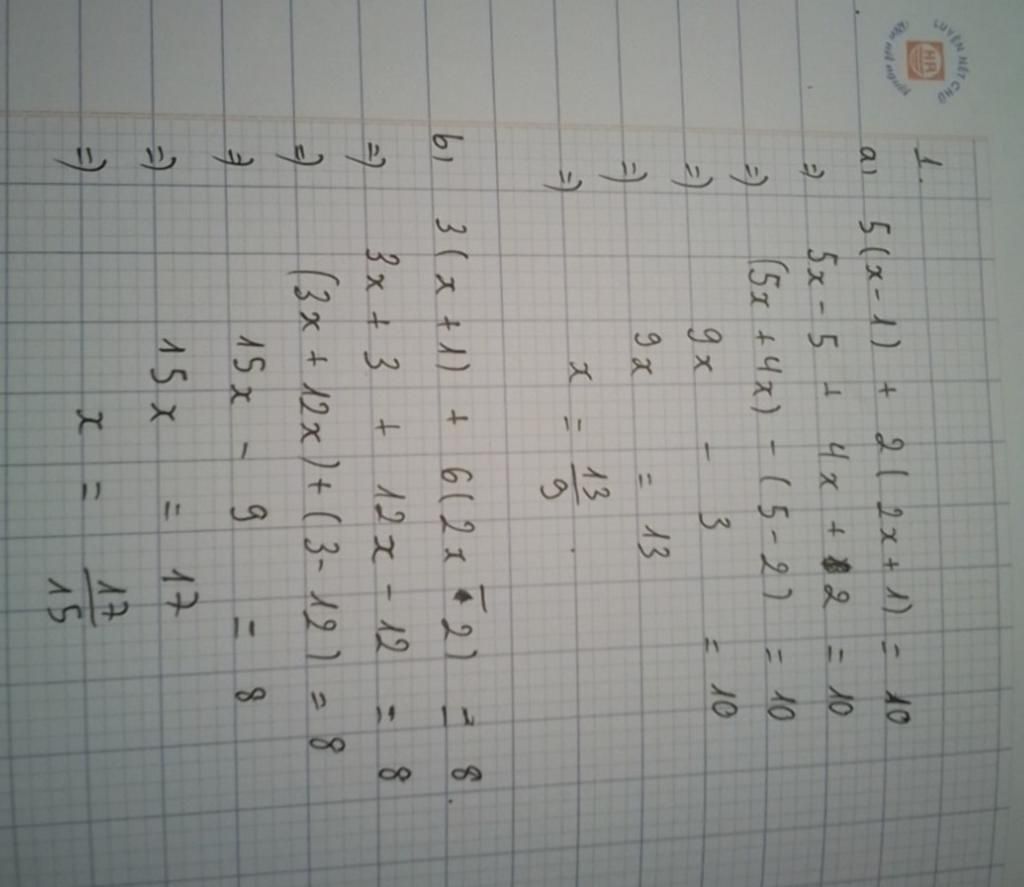 LUYỆN NÉT CHỮ
HA
1.
a) 5(x-1) + 2(2x+1) = 10
=) 5x-5 + 4x + 2 = 10
=) (5x+4x) - (5-2) = 10
=) 9x - 3 = 10
=) 9x = 13
=) x = 13/9.
b) 3(x+1) + 6(2x-2) = 8.
=) 3x+3 + 12x-12 = 8
=) (3x+12x)+(3-12) = 8
=) 15x - 9 = 8
=) 15x = 17
=) x = 17/15